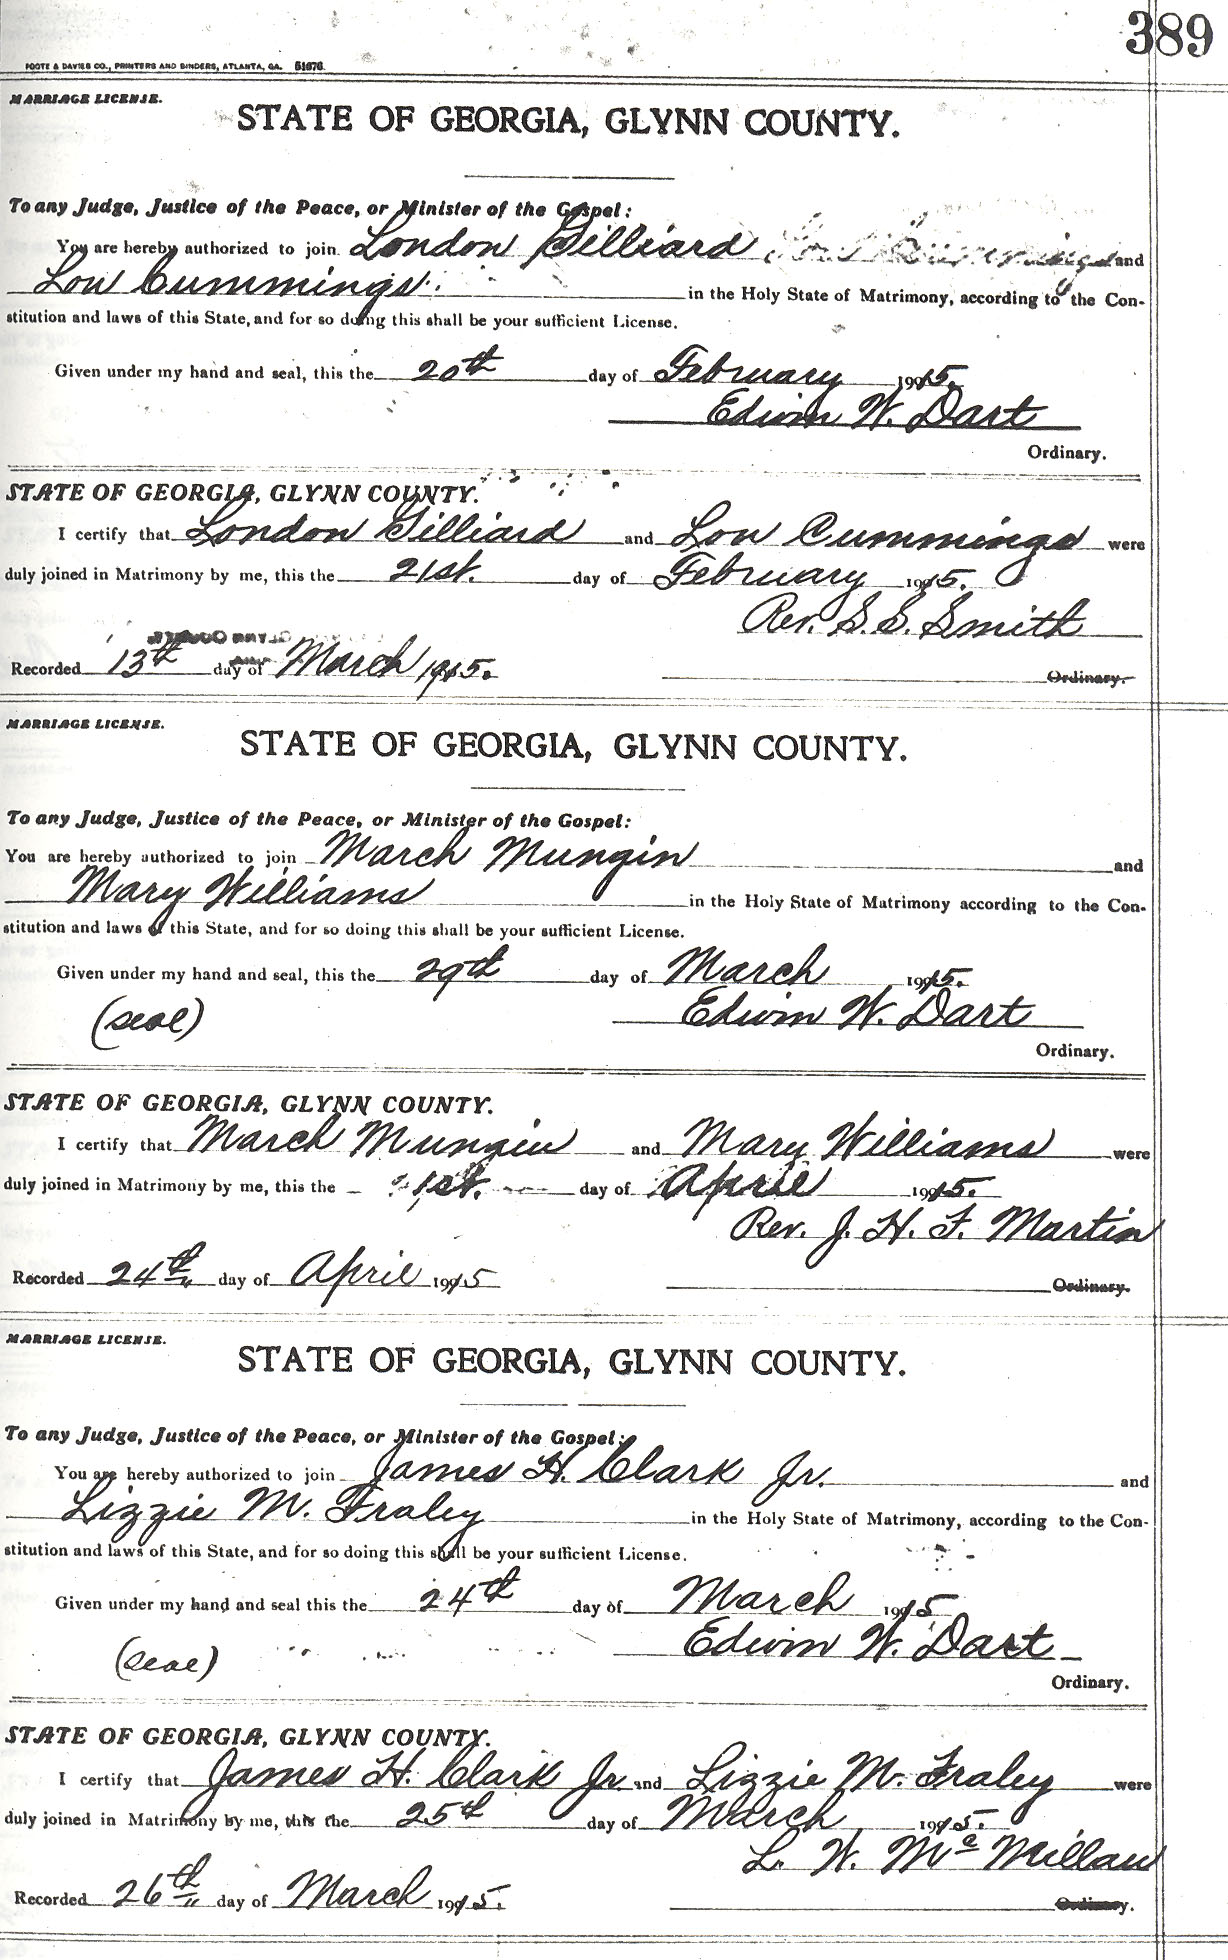 389
FOOTE & DAVIES CO., PRINTERS AND BINDERS, ATLANTA, GA. 51676
MARRIAGE LICENSE.
STATE OF GEORGIA, GLYNN COUNTY.
To any Judge, Justice of the Peace, or Minister of the Gospel:
You are hereby authorized to join London Gilliard Lou Cummings and
Lou Cummings in the Holy State of Matrimony, according to the Con-
stitution and laws of this State, and for so doing this shall be your sufficient License.
Given under my hand and seal, this the 20th day of February 1915.
Edwin W. Dart
Ordinary.
STATE OF GEORGIA, GLYNN COUNTY.
I certify that London Gilliard and Lou Cummings were
duly joined in Matrimony by me, this the 21st. day of February 1915.
Rev. S. S. Smith
Recorded 13th day of March 1915.
Ordinary.
MARRIAGE LICENSE.
STATE OF GEORGIA, GLYNN COUNTY.
To any Judge, Justice of the Peace, or Minister of the Gospel:
You are hereby authorized to join March Mungin and
Mary Williams in the Holy State of Matrimony according to the Con-
stitution and laws of this State, and for so doing this shall be your sufficient License.
Given under my hand and seal, this the 29th day of March 1915.
(seal) Edwin W. Dart
Ordinary.
STATE OF GEORGIA, GLYNN COUNTY.
I certify that March Mungin and Mary Williams were
duly joined in Matrimony by me, this the 1st. day of April 1915.
Rev. J. H. F. Martin
Recorded 24th day of April 1915
Ordinary.
MARRIAGE LICENSE.
STATE OF GEORGIA, GLYNN COUNTY.
To any Judge, Justice of the Peace, or Minister of the Gospel:
You are hereby authorized to join James H. Clark Jr. and
Lizzie M. Fraley in the Holy State of Matrimony, according to the Con-
stitution and laws of this State, and for so doing this shall be your sufficient License.
Given under my hand and seal this the 24th day of March 1915
(seal) Edwin W. Dart
Ordinary.
STATE OF GEORGIA, GLYNN COUNTY.
I certify that James H. Clark Jr. and Lizzie M. Fraley were
duly joined in Matrimony by me, this the 25th day of March 1915.
L. W. McMillan
Recorded 26th day of March 1915.
Ordinary.